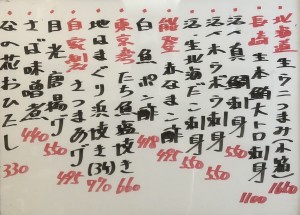 北海道 生ウニつまみ 一本箱 1620
長崎 生本鮪大トロ刺身 1100
活〆真鯛刺身 550
活〆ホウボウ刺身 550
北海道 生だこ刺身 495
能登 赤なまこ酢 418
白魚ポン酢
東京湾 たち魚塩焼き 660
地はまぐり浜焼き(3ヶ) 970
自家製 さつまあげ 495
目光唐揚げ 550
さば味噌煮 440
なの花おひたし 330